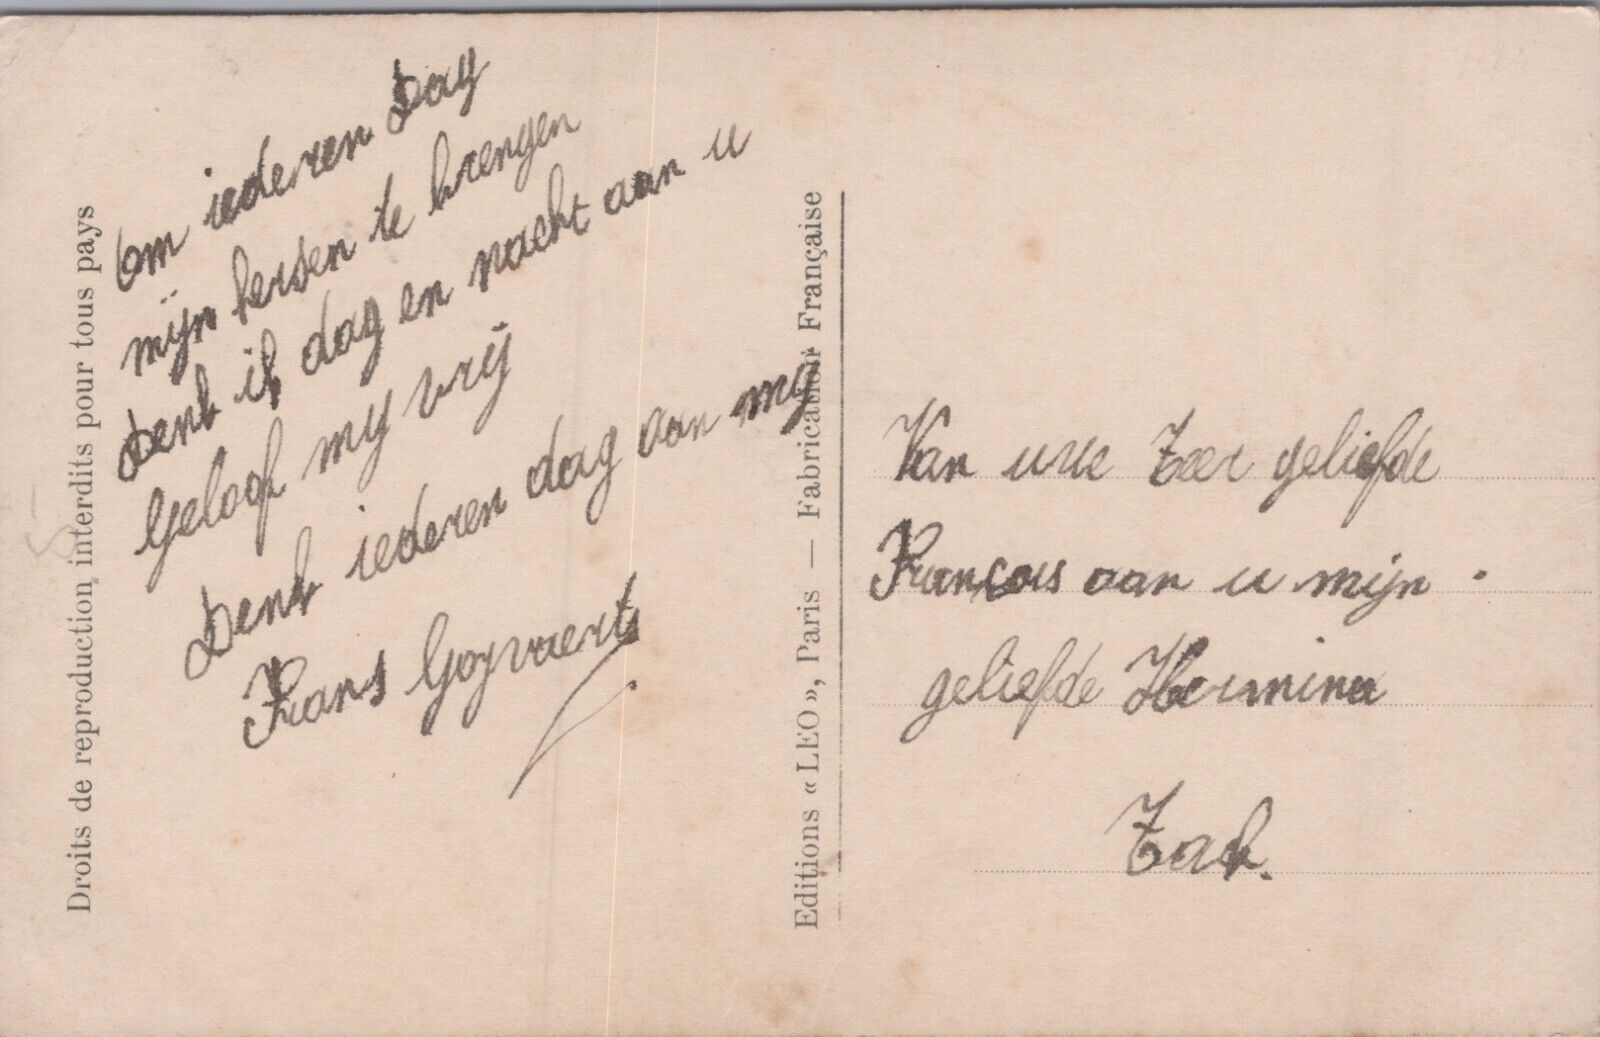 Droits de reproduction interdits pour tous pays
Om iederen Dag
mijn hersen te brengen
Denk ik dag en nacht aan u
Geloof my vrij
Denk iederen dag aan my
Frans Goyvaerts
Editions « LEO », Paris — Fabrication Française
Van uwe Zeer geliefde
François aan u mijn
geliefde Hermina